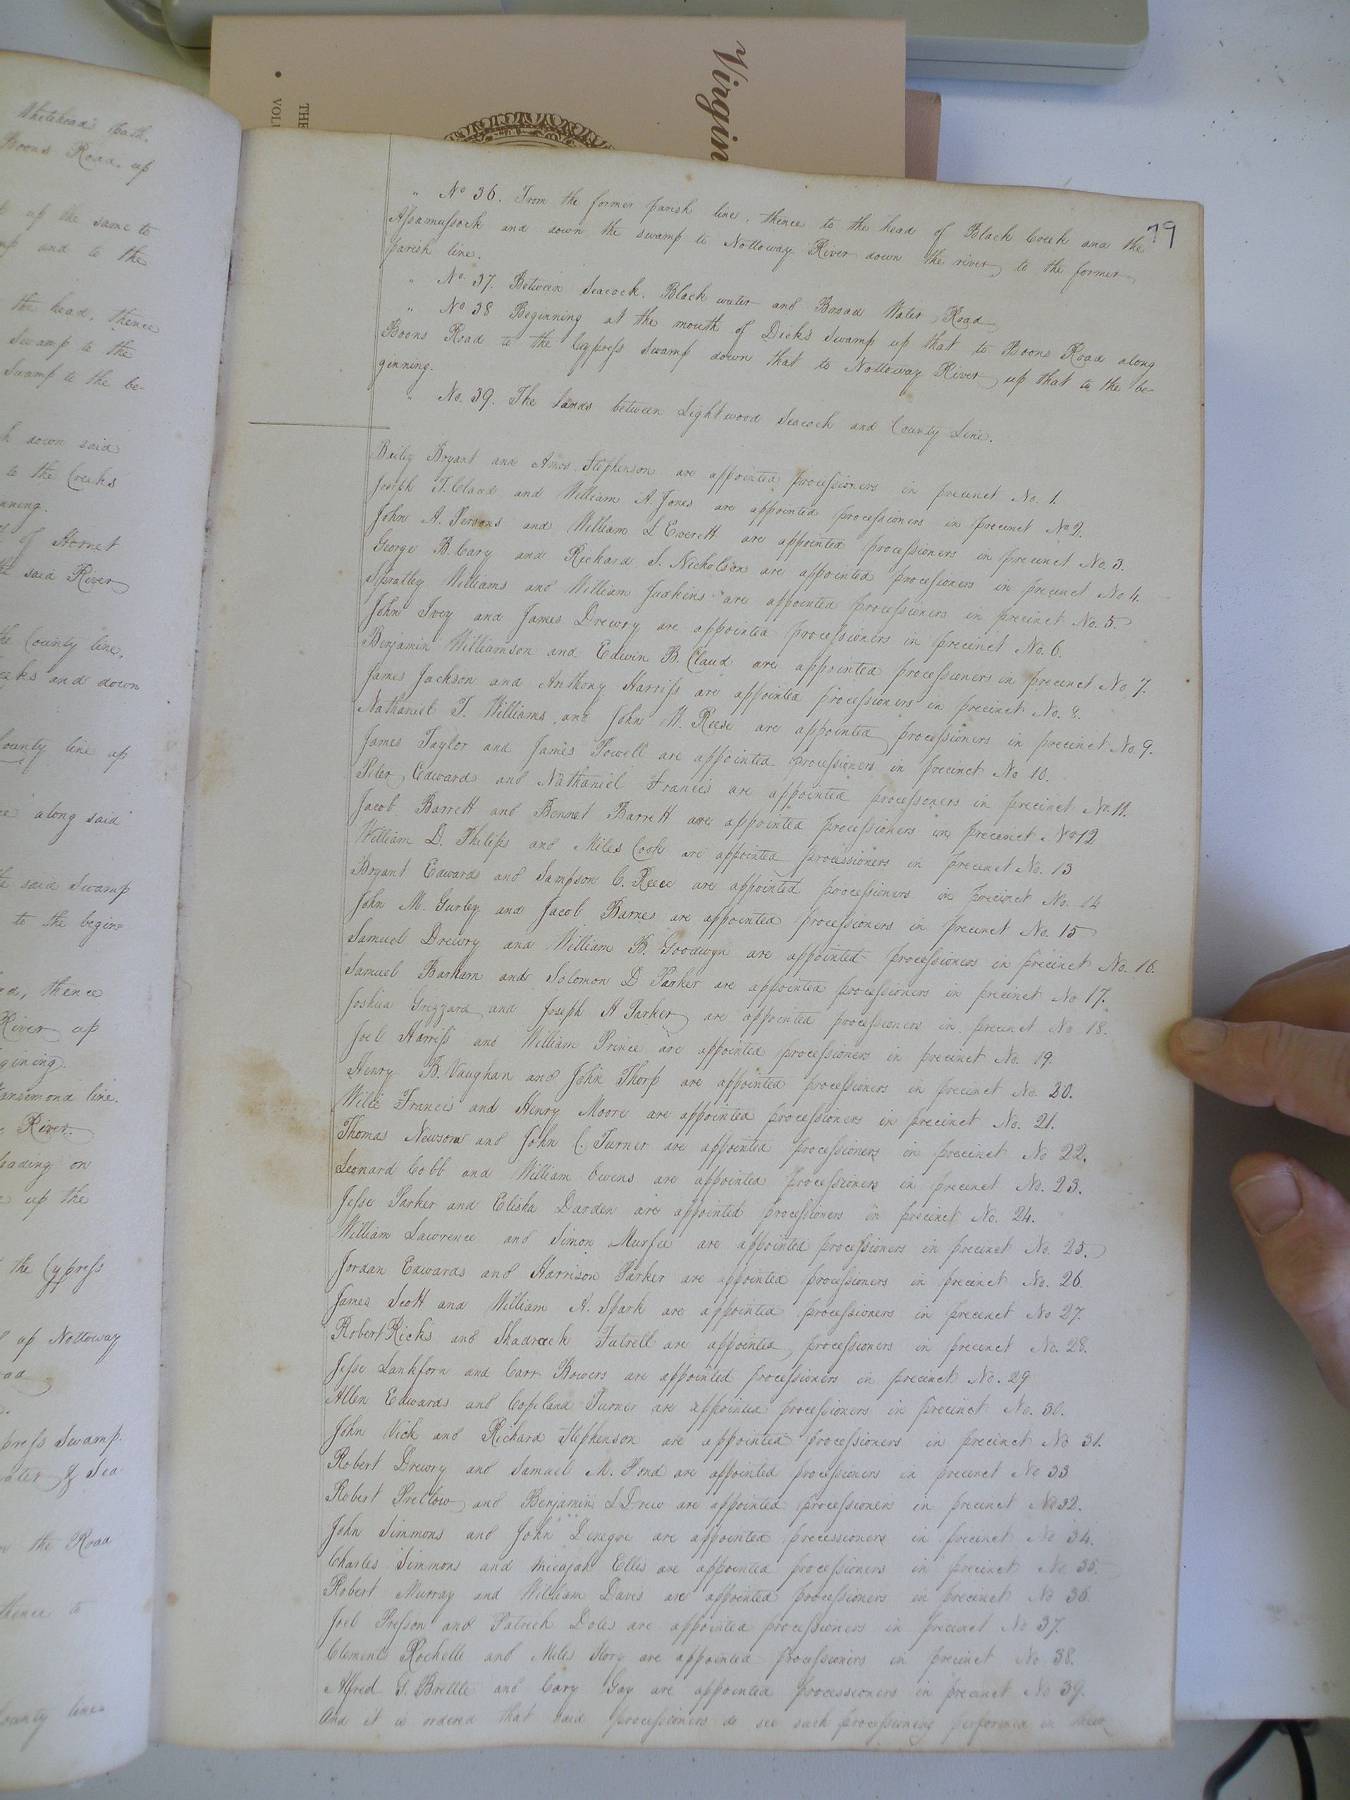 Virgin
THE
VOL
Whitehead's Path.
Boons Road. up
up of the same to
and to the
the head, thence
Swamp to the
Swamp to the be-
down said
to the Creeks
of Hornet
the said River
the County line.
and down
County line up
along said
the said Swamp
to the begin-
thence
River up
gining.
Nansemond line.
River.
leading on
up the
the Cypress
up Nottoway
Swamp.
& Sea
the Road
thence to
County line
79
" No 36. From the former parish line, thence to the head of Black Creek and the
Assamussock and down the swamp to Nottoway River down the river to the former
parish line.
" No 37. Between Seacock. Black water and Broad Water Road
" No 38 Beginning at the mouth of Dicks Swamp up that to Boons Road along
Boons Road to the Cypress Swamp down that to Nottoway River up that to the be-
ginning.
" No. 39. The lands between Lightwood Seacock and County Line.
Bailey Bryant and Amos Stephenson are appointed processioners in precinct No. 1.
Joseph T. Claud and William A. Jones are appointed processioners in precinct No 2.
John A. Persons and William L Everett are appointed processioners in precinct No. 3.
George B. Cary and Richard S. Nicholson are appointed processioners in precinct No 4.
Spratley Williams and William Judkins are appointed processioners in precinct No. 5.
John Ivey and James Drewry are appointed processioners in precinct No. 6.
Benjamin Williamson and Edwin B. Claud are appointed processioners in precinct No 7.
James Jackson and Anthony Harriss are appointed processioners in precinct No. 8.
Nathaniel T. Williams and John W. Reese are appointed processioners in precinct No 9.
James Taylor and James Powell are appointed processioners in precinct No 10.
Peter Edwards and Nathaniel Francis are appointed processoners in precinct No 11.
Jacob Barrett and Bennet Barrett are appointed processioners in precinct No 12
William D. Philips and Miles Cook are appointed processioners in precinct No. 13
Bryant Edwards and Sampson C. Reese are appointed processioners in precinct No. 14
John M. Gurley and Jacob Barnes are appointed processioners in precinct No. 15
Samuel Drewry and William B. Goodwyn are appointed processioners in precinct No. 16.
Samuel Barham and Solomon D Parker are appointed processioners in precinct No 17.
Joshua Grizzard and Joseph H Parker are appointed processioners in precinct No. 18.
Joel Harriss and William Prince are appointed processioners in precinct No. 19.
Henry B. Vaughan and John Thorp are appointed processioners in precinct No. 20.
Willie Francis and Henry Moore are appointed processioners in precinct No. 21.
Thomas Newsom and John C. Turner are appointed processioners in precinct No 22.
Leonard Cobb and William Owens are appointed processioners in precinct No. 23.
Jesse Parker and Elisha Darden are appointed processioners in precinct No. 24.
William Lawrence and Simon Murfee are appointed processioners in precinct No. 25.
Jordan Edwards and Harrison Parker are appointed processioners in precinct No. 26
James Scott and William A. Spark are appointed processioners in precinct No 27.
Robert Ricks and Shadrack Futrell are appointed processioners in precinct No. 28.
Jesse Lankforn and Carr Bowers are appointed processioners in precinct No. 29
Allen Edwards and Copeland Turner are appointed processioners in precinct No. 30.
John Vick and Richard Stephenson are appointed processioners in precinct No 31.
Robert Drewry and Samuel M. Pond are appointed processioners in precinct No 33
Robert Pretlow and Benjamin L Drew are appointed processioners in precinct No 32.
John Simmons and John are appointed processioners in precinct No 34.
Charles Simmons and Micajah Ellis are appointed processioners in precinct No 35.
Robert Murray and William Davis are appointed processioners in precinct No 36
Joel Presson and Patrick Doles are appointed processioners in precinct No 37.
Clements Rochelle and Miles Story are appointed processioners in precinct No 38.
Alfred G. Brittle and Cary Gay are appointed processioners in precinct No 39.
And it is ordered that said processioners do see such processioning performed in their